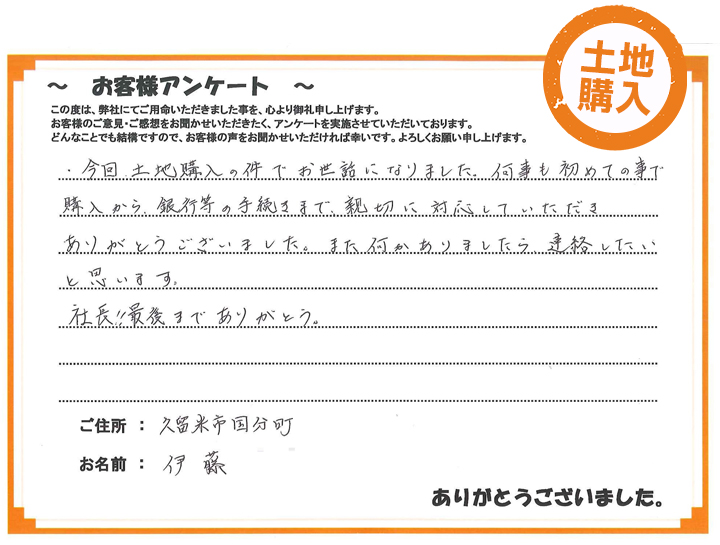 土地
購入
～ お客様アンケート ～
この度は、弊社にてご用命いただきました事を、心より御礼申し上げます。
お客様のご意見・ご感想をお聞かせいただきたく、アンケートを実施させていただいております。
どんなことでも結構ですので、お客様の声をお聞かせいただければ幸いです。よろしくお願い申し上げます。
・今回、土地購入の件でお世話になりました。何事も初めての事で
購入から、銀行等の手続きまで、親切に対応していただき
ありがとうございました。また何かありましたら連絡したい
と思います。
社長!!最後までありがとう。
ご住所 ： 久留米市国分町
お名前 ： 伊藤
ありがとうございました。